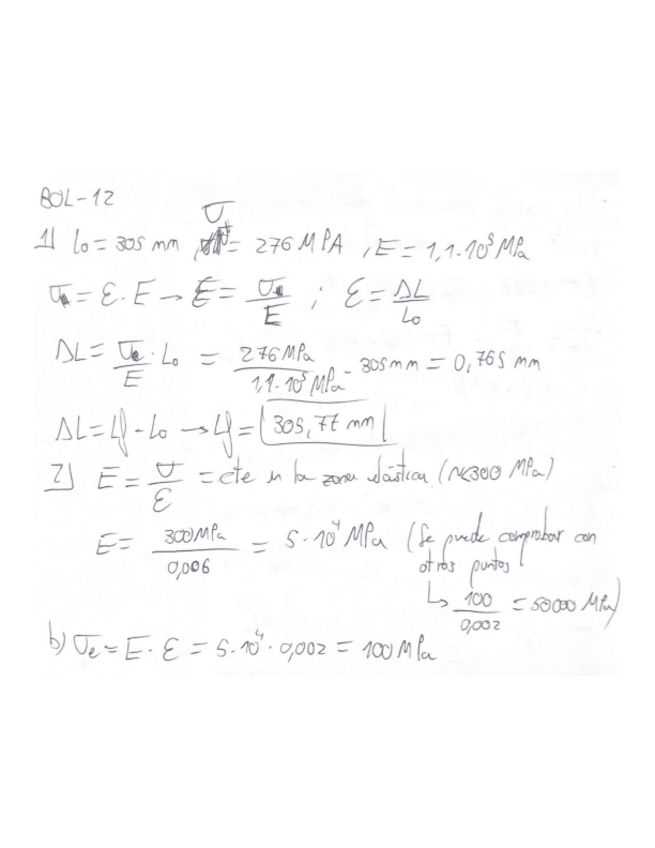 BOL-12
1) l₀ = 305 mm, σ = 276 MPA, E = 1,1·10⁵ MPa
σ = ε·E → ε = σ/E ; ε = ΔL/L₀
ΔL = σ/E · L₀ = 276 MPa / 1,1·10⁵ MPa · 305 mm = 0,765 mm
ΔL = Lf - L₀ → Lf = 305,77 mm
2) E = σ/ε = cte en la zona elástica (σ<300 MPa)
E = 300 MPa / 0,006 = 5·10⁴ MPa (Se puede comprobar con
otros puntos
↳ 100/0,002 = 50000 MPa)
b) σe = E·ε = 5·10⁴·0,002 = 100 MPa